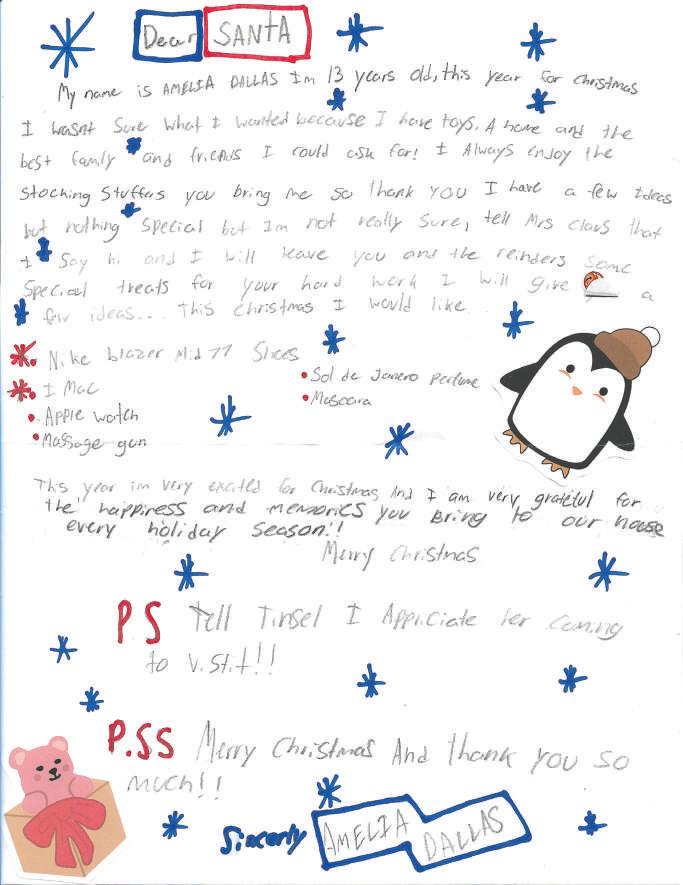 Dear SANTA
My name is AMELIA DALLAS Im 13 years old, this year for christmas
I wasnt sure what I wanted because I have toys. A home and the
best family and friends I could ask for! I Always enjoy the
stocking stuffers you bring me so thank you I have a few Ideas
but nothing special but Im not really sure, tell Mrs claus that
I say hi and I will leave you and the reinders some
special treats for your hard work I will give a
few ideas... This christmas I would like
Nike blazer Mid 77 Slices
I Mac
Apple watch
Massage gun
Sol de Janero perfume
Mascara
This year im very excited for christmas And I am very grateful for
the happiness and memories you bring to our house
every holiday season!!
Merry christmas
PS Tell Tinsel I Appriciate her coming
to visit!!
P.SS Merry Christmas And thank you so
much!!
Sincerly AMELIA DALLAS